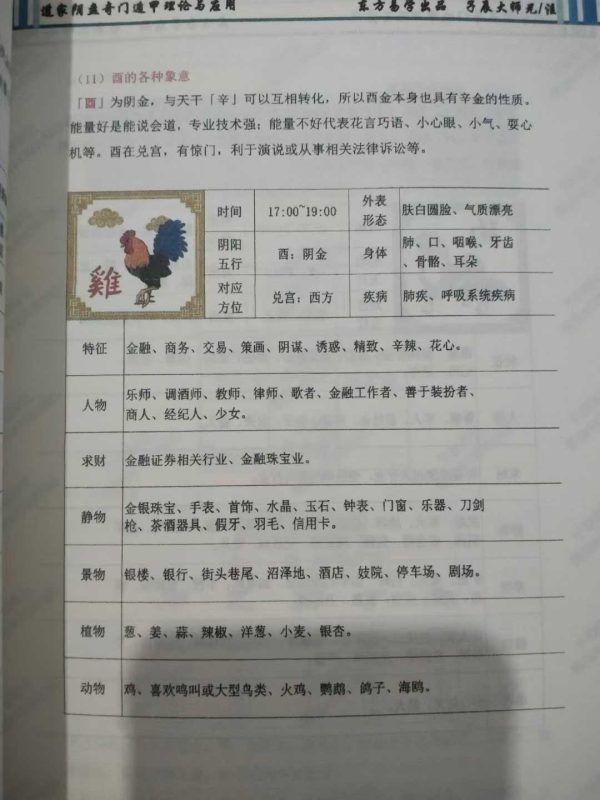 道家阴盘奇门遁甲理论与应用 东方易学出品 子辰大师兄/注
（11）酉的各种象意
「酉」为阴金，与天干「辛」可以互相转化，所以酉金本身也具有辛金的性质。
能量好是能说会道，专业技术强；能量不好代表花言巧语、小心眼、小气、耍心
机等。酉在兑宫，有惊门，利于演说或从事相关法律诉讼等。
雞
时间 17:00~19:00 外表形态 肤白圆脸、气质漂亮
阴阳五行 酉：阴金 身体 肺、口、咽喉、牙齿、骨骼、耳朵
对应方位 兑宫：西方 疾病 肺疾、呼吸系统疾病
特征 金融、商务、交易、策画、阴谋、诱惑、精致、辛辣、花心。
人物 乐师、调酒师、教师、律师、歌者、金融工作者、善于装扮者、
商人、经纪人、少女。
求财 金融证券相关行业、金融珠宝业。
静物 金银珠宝、手表、首饰、水晶、玉石、钟表、门窗、乐器、刀剑
枪、茶酒器具、假牙、羽毛、信用卡。
景物 银楼、银行、街头巷尾、沼泽地、酒店、妓院、停车场、剧场。
植物 葱、姜、蒜、辣椒、洋葱、小麦、银杏。
动物 鸡、喜欢鸣叫或大型鸟类、火鸡、鹦鹉、鸽子、海鸥。